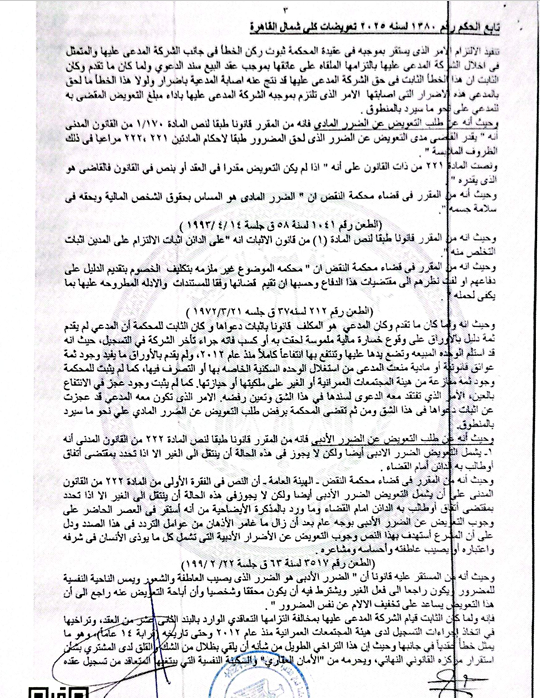 ٣
تابع الحكم رقم ١٣٨٠ لسنه ٢٠٢٥ تعويضات كلي شمال القاهرة
تنفيذ الالتزام الامر الذى يستقر بموجبه في عقيدة المحكمة ثبوت ركن الخطأ في جانب الشركة المدعى عليها والمتمثل
في اخلال الشركة المدعى عليها بالتزامها الملقاه على عاتقها بموجب عقد البيع سند الدعوي ولما كان ما تقدم وكان
الثابت ان هذا الخطأ الثابت في حق الشركة المدعى عليها قد نتج عنه اصابة المدعية باضرار ولولا هذا الخطا ما لحق
بالمدعي هذه الاضرار التى اصابتها الامر الذى تلتزم بموجبه الشركة المدعى عليها باداء مبلغ التعويض المقضى به
للمدعي على نحو ما سيرد بالمنطوق.
وحيث أنه عن طلب التعويض عن الضرر المادي فانه من المقرر قانونا طبقا لنص المادة ١/١٧٠ من القانون المدنى
أنه " يقدر القاضى مدى التعويض عن الضرر الذى لحق المضرور طبقا لاحكام المادتين ٢٢١، ٢٢٢ مراعيا في ذلك
الظروف الملابسة ".
ونصت المادة ٢٢١ من ذات القانون على أنه " اذا لم يكن التعويض مقدرا فى العقد أو بنص في القانون فالقاضى هو
الذى يقدره ".
وحيث أنه من المقرر في قضاء محكمة النقض ان " الضرر المادى هو المساس بحقوق الشخص المالية وبحقه فى
سلامة جسمه ".
(الطعن رقم ١٠٤١ لسنة ٥٨ ق جلسة ١٩٩٣/٤/١٤)
وحيث انه من المقرر قانونا طبقا لنص المادة (١) من قانون الاثبات انه "على الدائن اثبات الالتزام على المدين اثبات
التخلص منه ".
وحيث انه من المقرر في قضاء محكمة النقض ان " محكمه الموضوع غير ملزمه بتكليف الخصوم بتقديم الدليل على
دفاعهم او لفت نظرهم الى مقتضيات هذا الدفاع وحسبها ان تقيم قضائها وفقا للمستندات والادله المطروحه عليها بما
يكفى لحمله".
(الطعن رقم ٢١٢ لسنه ٣٧ ق جلسة ١٩٧٢/٣/٢١)
وحيث انه ولما كان ما تقدم وكان المدعي هو المكلف قانونا باثبات دعواها و كان الثابت للمحكمة أن المدعي لم يقدم
ثمة دليل بالأوراق على وقوع خسارة مالية ملموسة لحقت به أو كسب فاته جراء تأخر الشركة في التسجيل، حيث انه
قد استلم الوحده المبيعه وتضع يدها عليها وتنتفع بها انتفاعاً كاملاً منذ عام ٢٠١٢، ولم يقدم بالأوراق ما يفيد وجود ثمة
عوائق قانونية أو مادية منعت المدعى من استغلال الوحده السكنية الخاصه بها أو التصرف فيها، كما لم يثبت للمحكمة
وجود ثمة منازعة من هيئة المجتمعات العمرانية أو الغير على ملكيتها أو حيازتها. كما لم يثبت وجود عجز في الانتفاع
بالعين، الأمر الذي تفتقد معه الدعوى لسندها في هذا الشق وتعين رفضه. الامر الذى تكون معه المدعي قد عجزت
عن اثبات دعواها فى هذا الشق ومن ثم تقضى المحكمة برفض طلب التعويض عن الضرر المادي علي نحو ما سيرد
بالمنطوق.
وحيث أنه عن طلب التعويض عن الضرر الأدبي فانه من المقرر قانونا طبقا لنص المادة ٢٢٢ من القانون المدنى أنه
١- يشمل التعويض الضرر الادبى أيضا ولكن لا يجوز فى هذه الحالة أن ينتقل الى الغير الا اذا تحدد بمقتضى أتفاق
أوطالب به الدائن أمام القضاء .
وحيث أنه من المقرر فى قضاء محكمة النقض - الهيئة العامة - أن النص فى الفقرة الأولى من المادة ٢٢٢ من القانون
المدنى على أن يشمل التعويض الضرر الأدبى أيضا ولكن لا يجوزفى هذه الحالة أن ينتقل الى الغير الا اذا تحدد
بمقتضى أتفاق أوطالب به الدائن امام القضاء وما ورد بالمذكرة الأيضاحية من أنه أستقر فى العصر الحاضر على
وجوب التعويض عن الضرر الأدبى بوجه عام بعد أن زال ما غامر الأذهان من عوامل التردد فى هذا الصدد ودل
على أن المشرع أستهدف بهذا النص وجوب التعويض عن الأضرار الأدبية التى تشمل كل ما يوذى الأنسان فى شرفه
واعتباره أو يصيب عاطفته وأحساسه ومشاعره .
(الطعن رقم ٣٥١٧ لسنة ٦٣ ق جلسة ٢٢/ /١٩٩)
وحيث أنه من المستقر عليه قانونا أن " الضرر الأدبى هو الضرر الذى يصيب العاطفة والشعور ويمس الناحية النفسية
للمضرور ويكون راجعا الى فعل الغير ويشترط فيه أن يكون محققا وشخصيا وأن أباحة التعويض عنه راجع الى أن
هذا التعويض يساعد على تخفيف الآلام عن نفس المضرور ".
فإنه ولما كان الثابت قيام الشركة المدعى عليها بمخالفة التزامها التعاقدي الوارد بالبند الثاني عشر من العقد، وتراخيها
في اتخاذ إجراءات التسجيل لدى هيئة المجتمعات العمرانية منذ عام ٢٠١٢ وحتى تاريخه (قرابة ١٤ عاماً)، وهو ما
يمثل خطأ عقدياً في جانبها وحيث إن هذا التراخي الطويل من شأنه أن يلقي بظلال من الشك والقلق لدى المشتري بشأن
استقرار مركزه القانوني النهائي، ويحرمه من "الأمان العقاري" والسكينة النفسية التي يبتغيها المتعاقد من تسجيل عقده